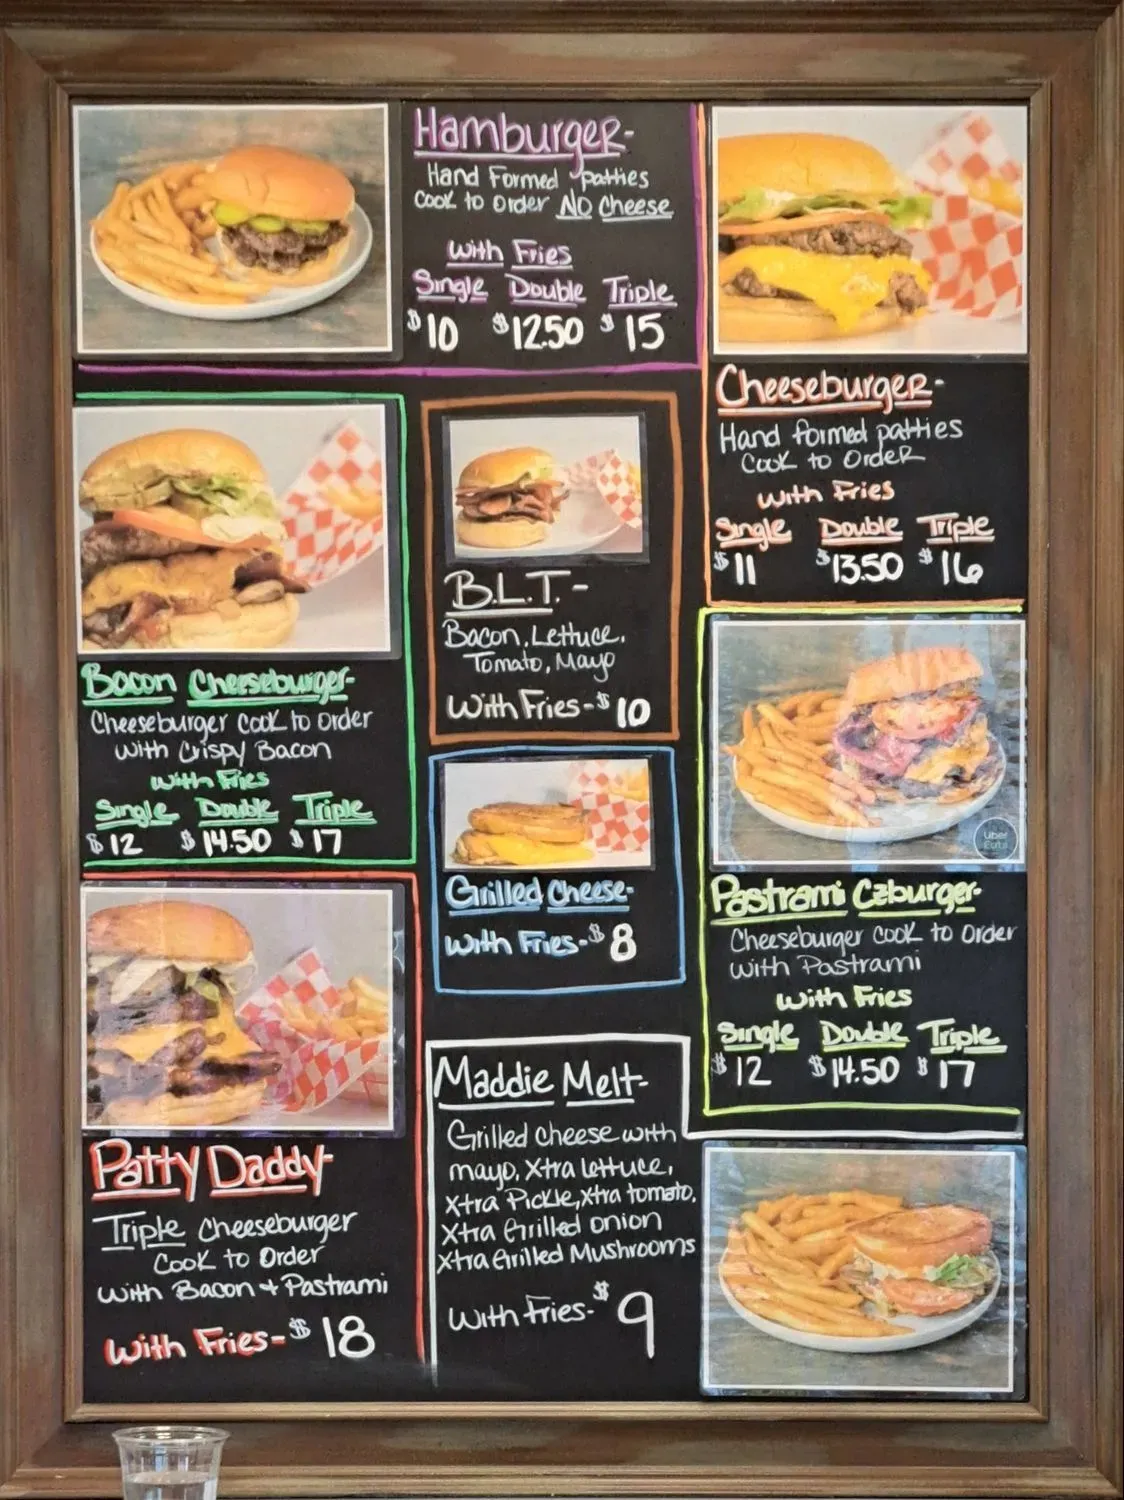 Hamburger-
Hand Formed patties
Cook to Order NO Cheese
With Fries
Single Double Triple
$10 $12.50 $15
Cheeseburger-
Hand formed patties
Cook to Order
With Fries
Single Double Triple
$11 $13.50 $16
Bacon Cheeseburger-
Cheeseburger Cook to Order
With Crispy Bacon
With Fries
Single Double Triple
$12 $14.50 $17
B.L.T.-
Bacon, Lettuce,
Tomato, Mayo
With Fries-$10
Grilled Cheese-
With Fries-$8
Uber
Eats
Pastrami Czburger-
Cheeseburger Cook to Order
With Pastrami
With Fries
Single Double Triple
$12 $14.50 $17
Patty Daddy-
Triple Cheeseburger
Cook to Order
With Bacon + Pastrami
With Fries-$18
Maddie Melt-
Grilled Cheese with
mayo, Xtra lettuce,
Xtra Pickle, Xtra tomato,
Xtra Grilled onion
Xtra Grilled Mushrooms
With Fries-$9